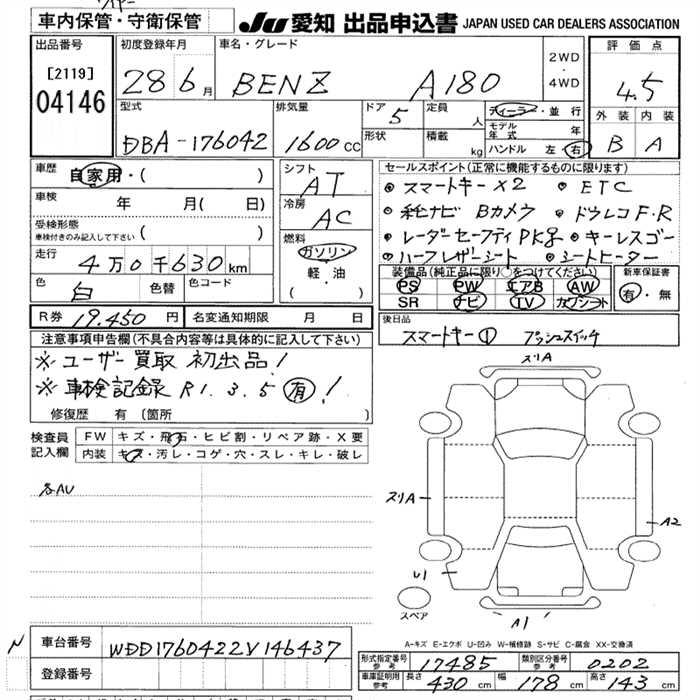 車内保管・守衛保管
JU 愛知 出品申込書 JAPAN USED CAR DEALERS ASSOCIATION
出品番号
[2119]
04146
初度登録年月
28 6月
車名・グレード
BENZ A180
2WD
・
4WD
評価点
4.5
外装 内装
B A
型式
DBA-176042
排気量
1600cc
ドア
5
形状
定員
人
積載
kg
ディーラー・並行
モデル年式 年
ハンドル 左・右
車歴
自家用・( )
車検 年 月( 日)
受検形態
車検付きのみ記入して下さい ( )
走行
4万0千630km
色
白
色替
色コード
シフト
AT
冷房
AC
燃料
ガソリン
軽・油
( )
セールスポイント(正常に機能するものに限ります)
スマートキー×2 ETC
純正ナビ Bカメラ ドラレコF・R
レーダーセーフティPKg キーレスゴー
ハーフレザーシート シートヒーター
装備品(純正品に限り○をつけてください)
PS PW エアB AW
SR ナビ TV カワシート
新車保証書
有・無
R券 19,450円
名変通知期限 月 日
後日品
スマートキー① プッシュスイッチ
注意事項申告欄(不具合内容等は具体的に記入して下さい)
※ユーザー買取 初出品!
※車検記録R1.3.5有!
修復歴 有(箇所 )
検査員記入欄
FW キズ・飛石・ヒビ割・リペア跡・X要
内装 キズ・汚レ・コゲ・穴・スレ・キレ・破レ
スリA
スリA
A2
U1
スペア
A1
A-キズ E-エクボ U-凹み W-補修跡 S-サビ C-腐食 XX-交換済
車台番号
WDD1760422V146437
登録番号
形式指定番号 参考 17485
類別区分番号 参考 0202
車庫証明用 参考 長さ 430cm 幅 178cm 高さ 143cm